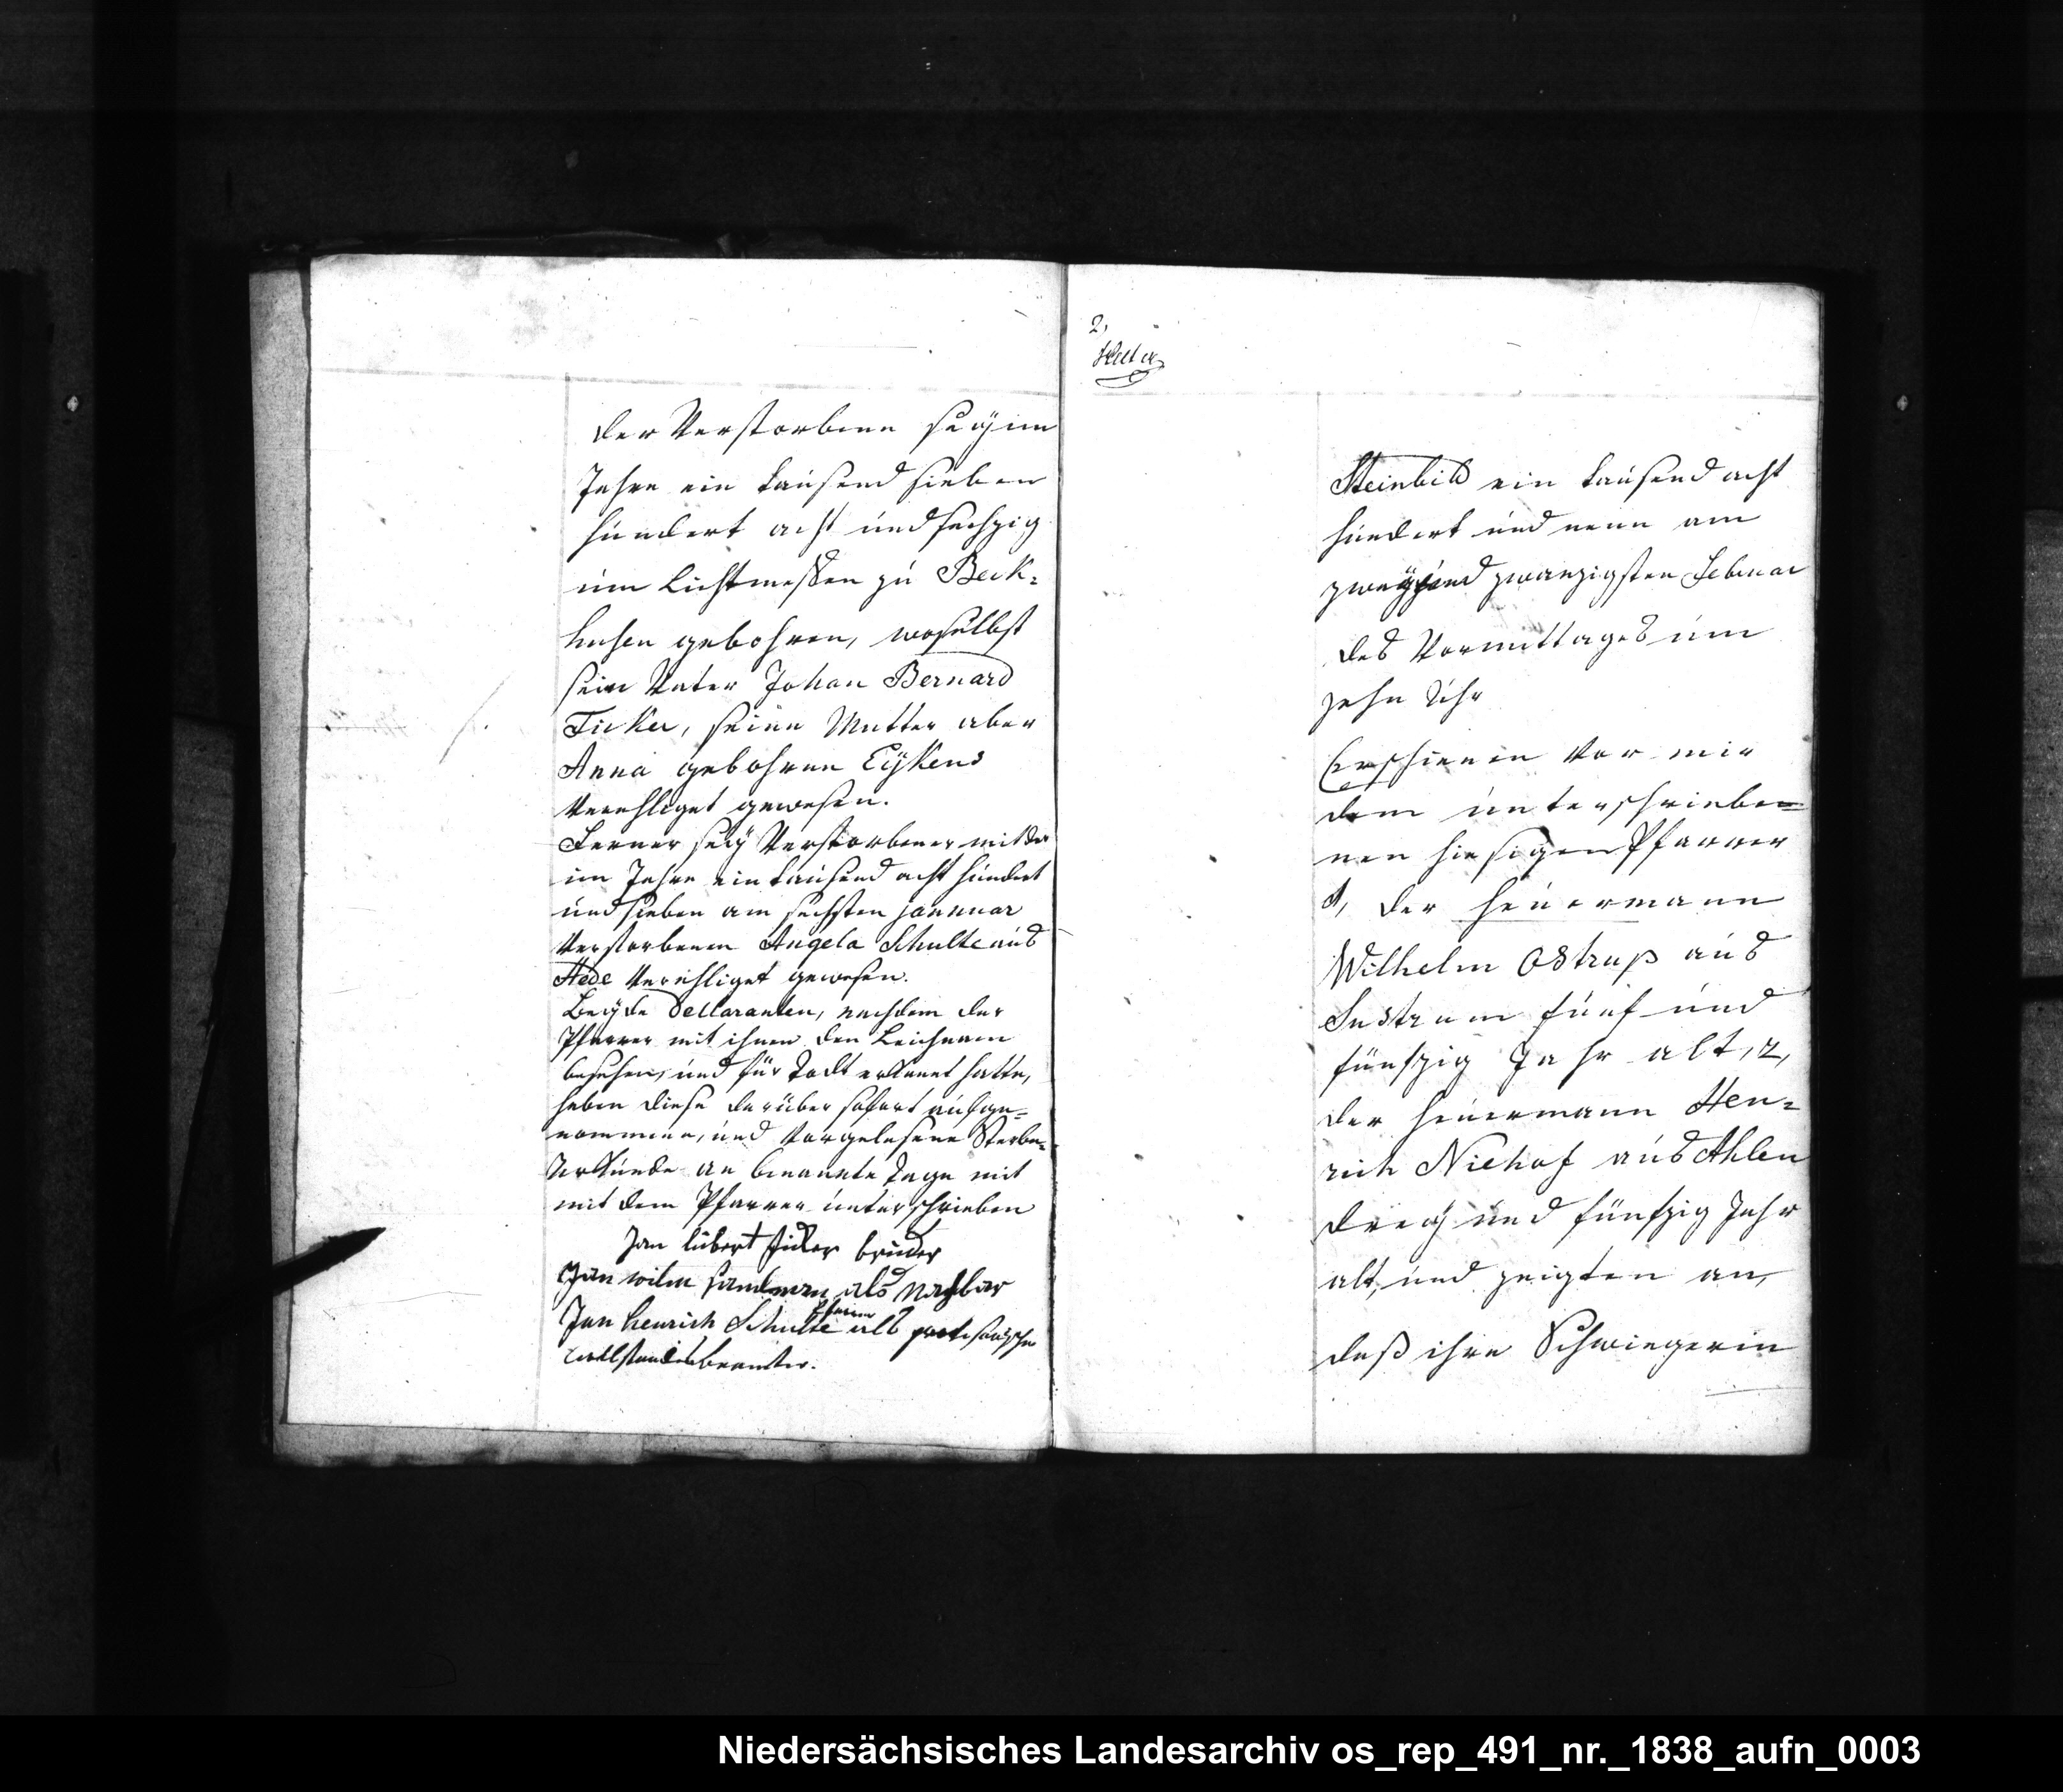 der Verstorbene seÿ im
Jahre ein tausend sieben
hundert acht und sechzig
um Lichtmessen zu Beek-
husen gebohren, woselbst
sein Vater Johan Bernard
Ficker, seine Mutter aber
Anna gebohrne Eÿkens
Verehliget gewesen.
Ferner seÿ Verstorbener mit der
im Jahre ein tausend acht hundert
und sieben am sechsten Jannuar
Verstorbenen Angela Schulte aus
Hede Verehliget gewesen.
Beÿde Dellaranten, nachdem der
Pfarrer mit ihnen den Leichnam
besehen, und für Todt erkannt hatte,
haben diese darüber sofort aufge-
nommene, und Vorgelesene Sterbe-
Urkunde an benannte Tage mit
mit dem Pfarrer unterschrieben
Jan lübert ficker bruder
Jan wilm sandman als Nachbar
Jan henrich Schulte als
2,
Steinbild ein tausend acht
hundert und neun am
zweÿ und zwanzigsten Februar
des Vormittages um
zehn Uhr
Erschienen Vor mir
dem unterschriebe=
nen hiesigen Pfarrer
1, der Heuermann
Wilhelm Ostrup aus
Sustrum fünf und
fünfzig Jahr alt, 2,
der Heuermann Hen-
rich Niehof aus Ahlen
dreÿ und fünfzig Jahr
alt, und zeigten an,
daß ihre Schwiegerin
Niedersächsisches Landesarchiv os_rep_491_nr._1838_aufn_0003